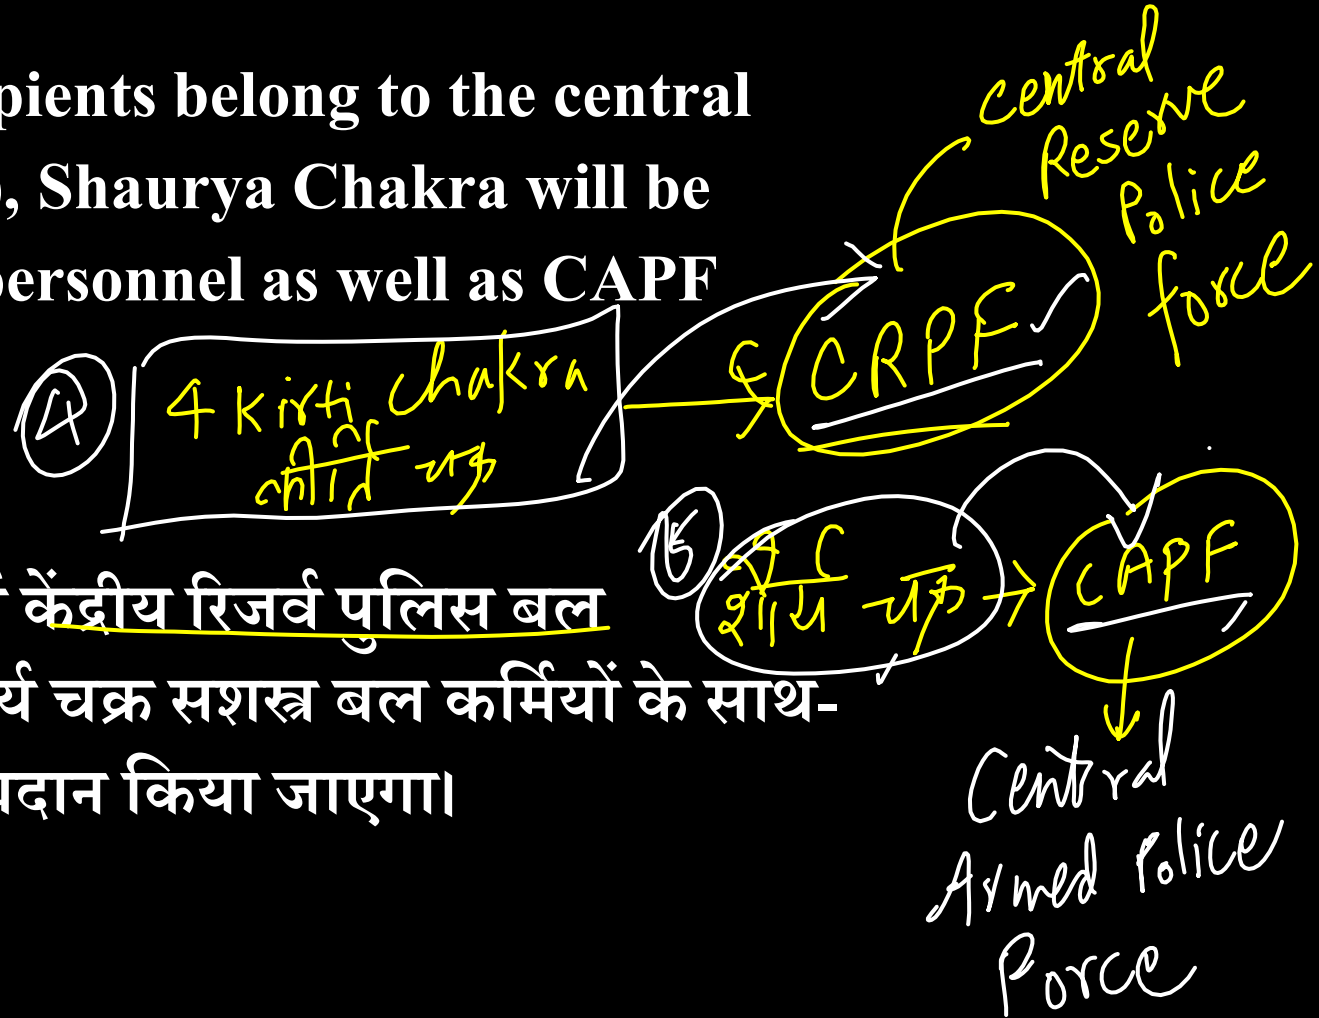 pients belong to the central
), Shaurya Chakra will be
personnel as well as CAPF
Central
Reserve
Police
force
CRPF
4
4 Kirti Chakra
कीर्ति चक्र
शौर्य चक्र
CAPF
केंद्रीय रिजर्व पुलिस बल
र्य चक्र सशस्त्र बल कर्मियों के साथ-
प्रदान किया जाएगा।
Central
Armed Police
Force